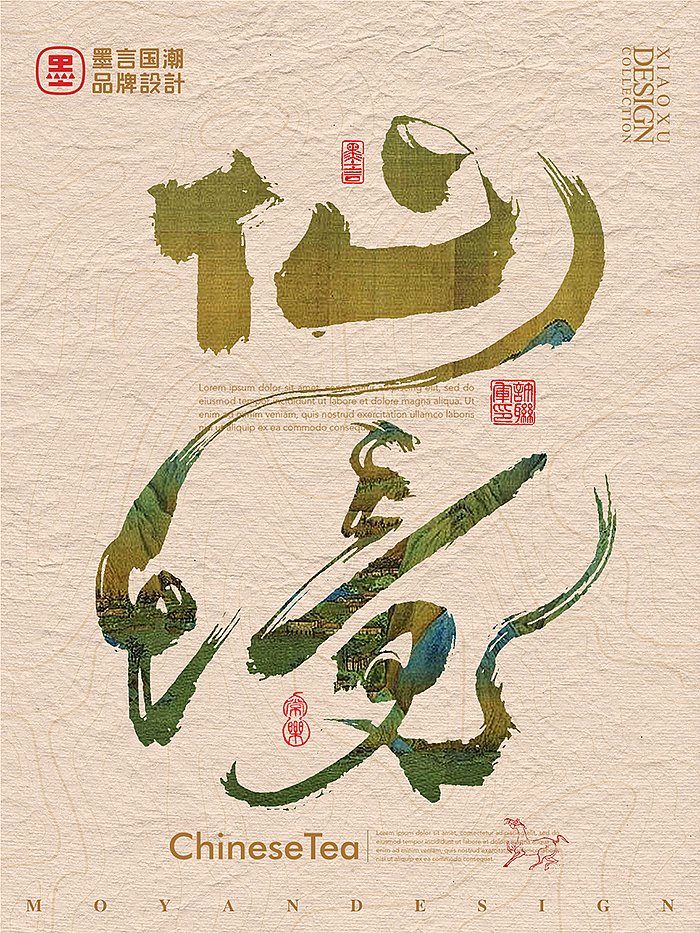 墨言国潮
品牌設計
XIAOXU
DESIGN
COLLECTION
墨言
Lorem ipsum dolor sit amet, consectetur adipiscing elit, sed do
eiusmod tempor incididunt ut labore et dolore magna aliqua. Ut
enim ad minim veniam, quis nostrud exercitation ullamco laboris
nisi ut aliquip ex ea commodo consequat.
常樂
ChineseTea
Lorem ipsum dolor sit amet, consectetur adipiscing elit, sed do
eiusmod tempor incididunt ut labore et dolore magna aliqua. Ut
enim ad minim veniam, quis nostrud exercitation
nisi ut aliquip ex ea commodo consequat.
MOYANDESIGN